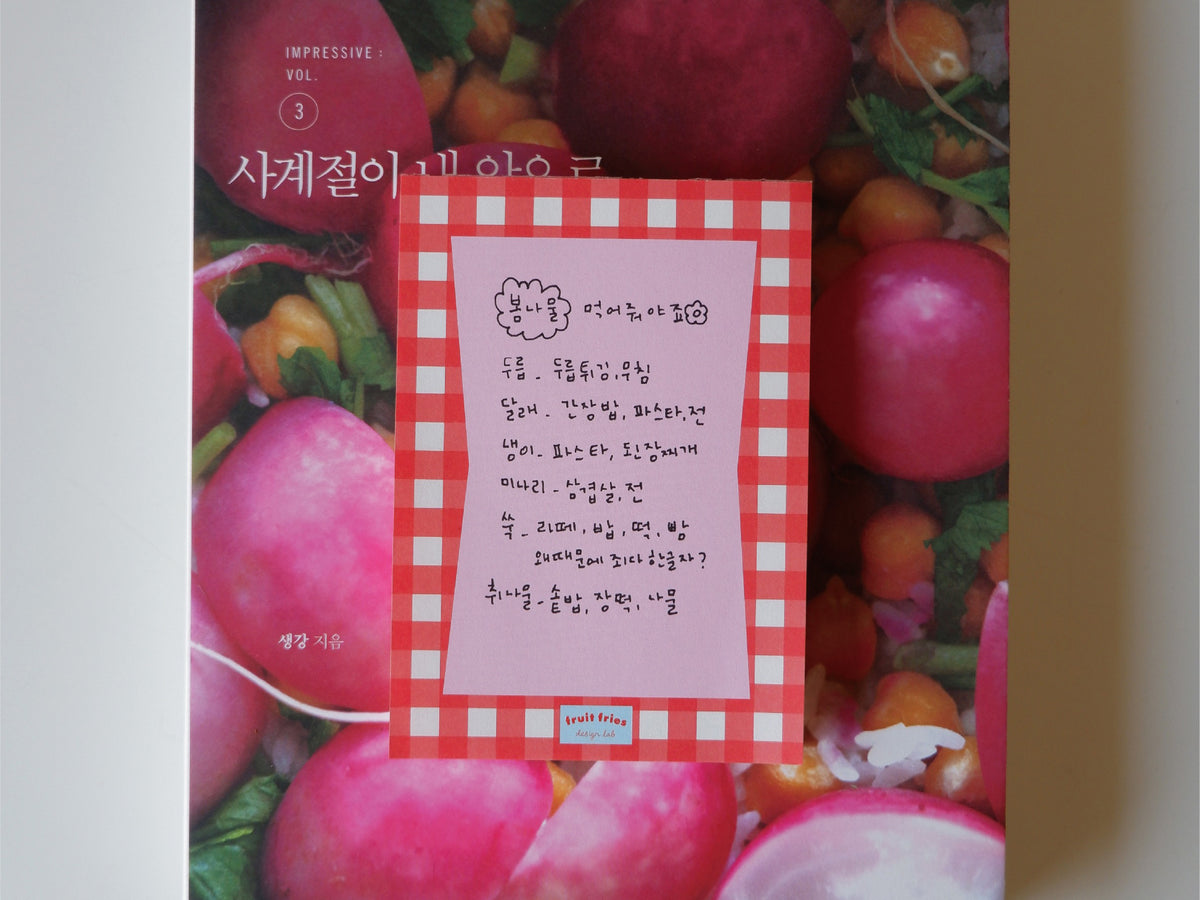 IMPRESSIVE :
VOL.
3
사계절이 내 안으로
봄나물 먹어줘야죠
두릅 - 두릅튀김, 무침
달래 - 간장밥, 파스타, 전
냉이 - 파스타, 된장찌개
미나리 - 삼겹살, 전
쑥 - 라떼, 밥, 떡, 빵
왜때문에 죄다 한글자?
취나물 - 솥밥, 장떡, 나물
생강 지음
fruit fries
design lab